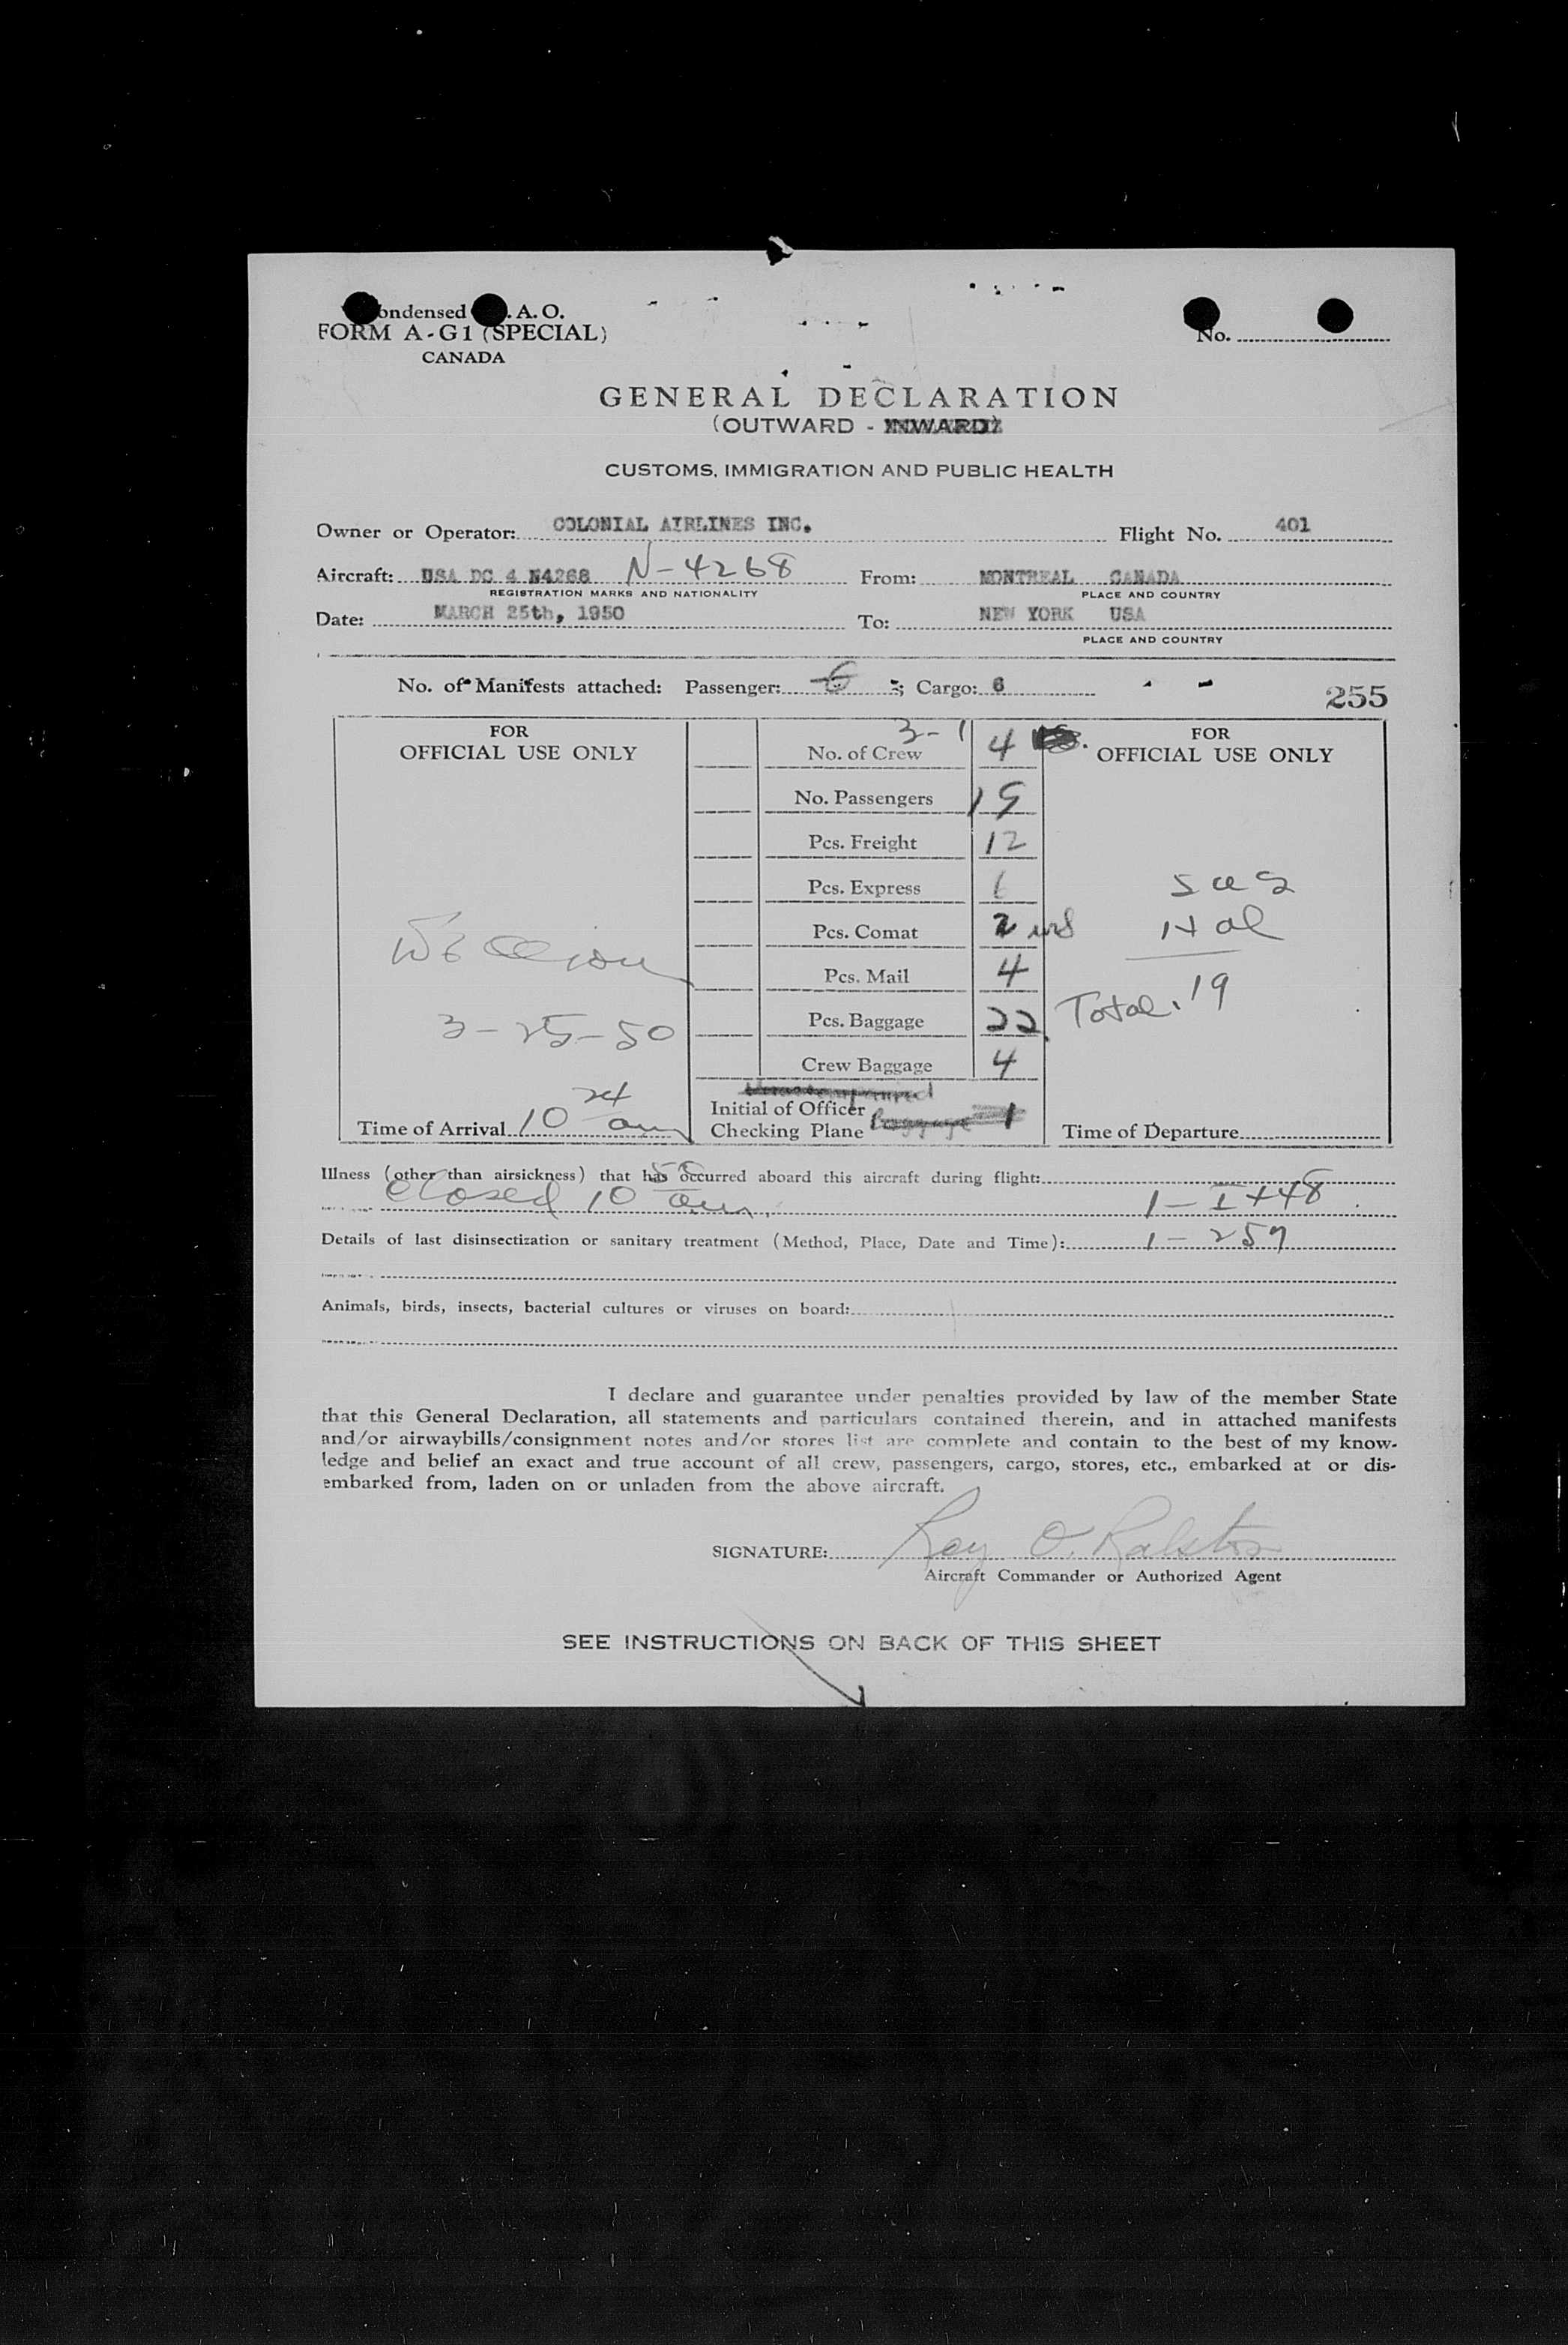 ondensed .A.O.
FORM A-G1 (SPECIAL)
CANADA
No.
GENERAL DECLARATION
(OUTWARD - INWARD)
CUSTOMS, IMMIGRATION AND PUBLIC HEALTH
Owner or Operator: COLONIAL AIRLINES INC. Flight No. 401
Aircraft: USA DC 4 N4268 N-4268 From: MONTREAL CANADA
REGISTRATION MARKS AND NATIONALITY PLACE AND COUNTRY
Date: MARCH 25th, 1950 To: NEW YORK USA
PLACE AND COUNTRY
No. of Manifests attached: Passenger: 6 ; Cargo: 6
255
FOR
OFFICIAL USE ONLY
3-25-50
Time of Arrival 10 24 am
3-1
No. of Crew 4
No. Passengers 19
Pcs. Freight 12
Pcs. Express 1
Pcs. Comat 2
Pcs. Mail 4
Pcs. Baggage 22
Crew Baggage 4
Initial of Officer
Checking Plane
Baggage 1
FOR
OFFICIAL USE ONLY
Total. 19
Time of Departure
Illness (other than airsickness) that has occurred aboard this aircraft during flight:
closed 10 55 am. 1-I448
Details of last disinsectization or sanitary treatment (Method, Place, Date and Time): 1-259
Animals, birds, insects, bacterial cultures or viruses on board:
I declare and guarantee under penalties provided by law of the member State
that this General Declaration, all statements and particulars contained therein, and in attached manifests
and/or airwaybills/consignment notes and/or stores list are complete and contain to the best of my know-
ledge and belief an exact and true account of all crew, passengers, cargo, stores, etc., embarked at or dis-
embarked from, laden on or unladen from the above aircraft.
SIGNATURE: Roy O. Ralston
Aircraft Commander or Authorized Agent
SEE INSTRUCTIONS ON BACK OF THIS SHEET